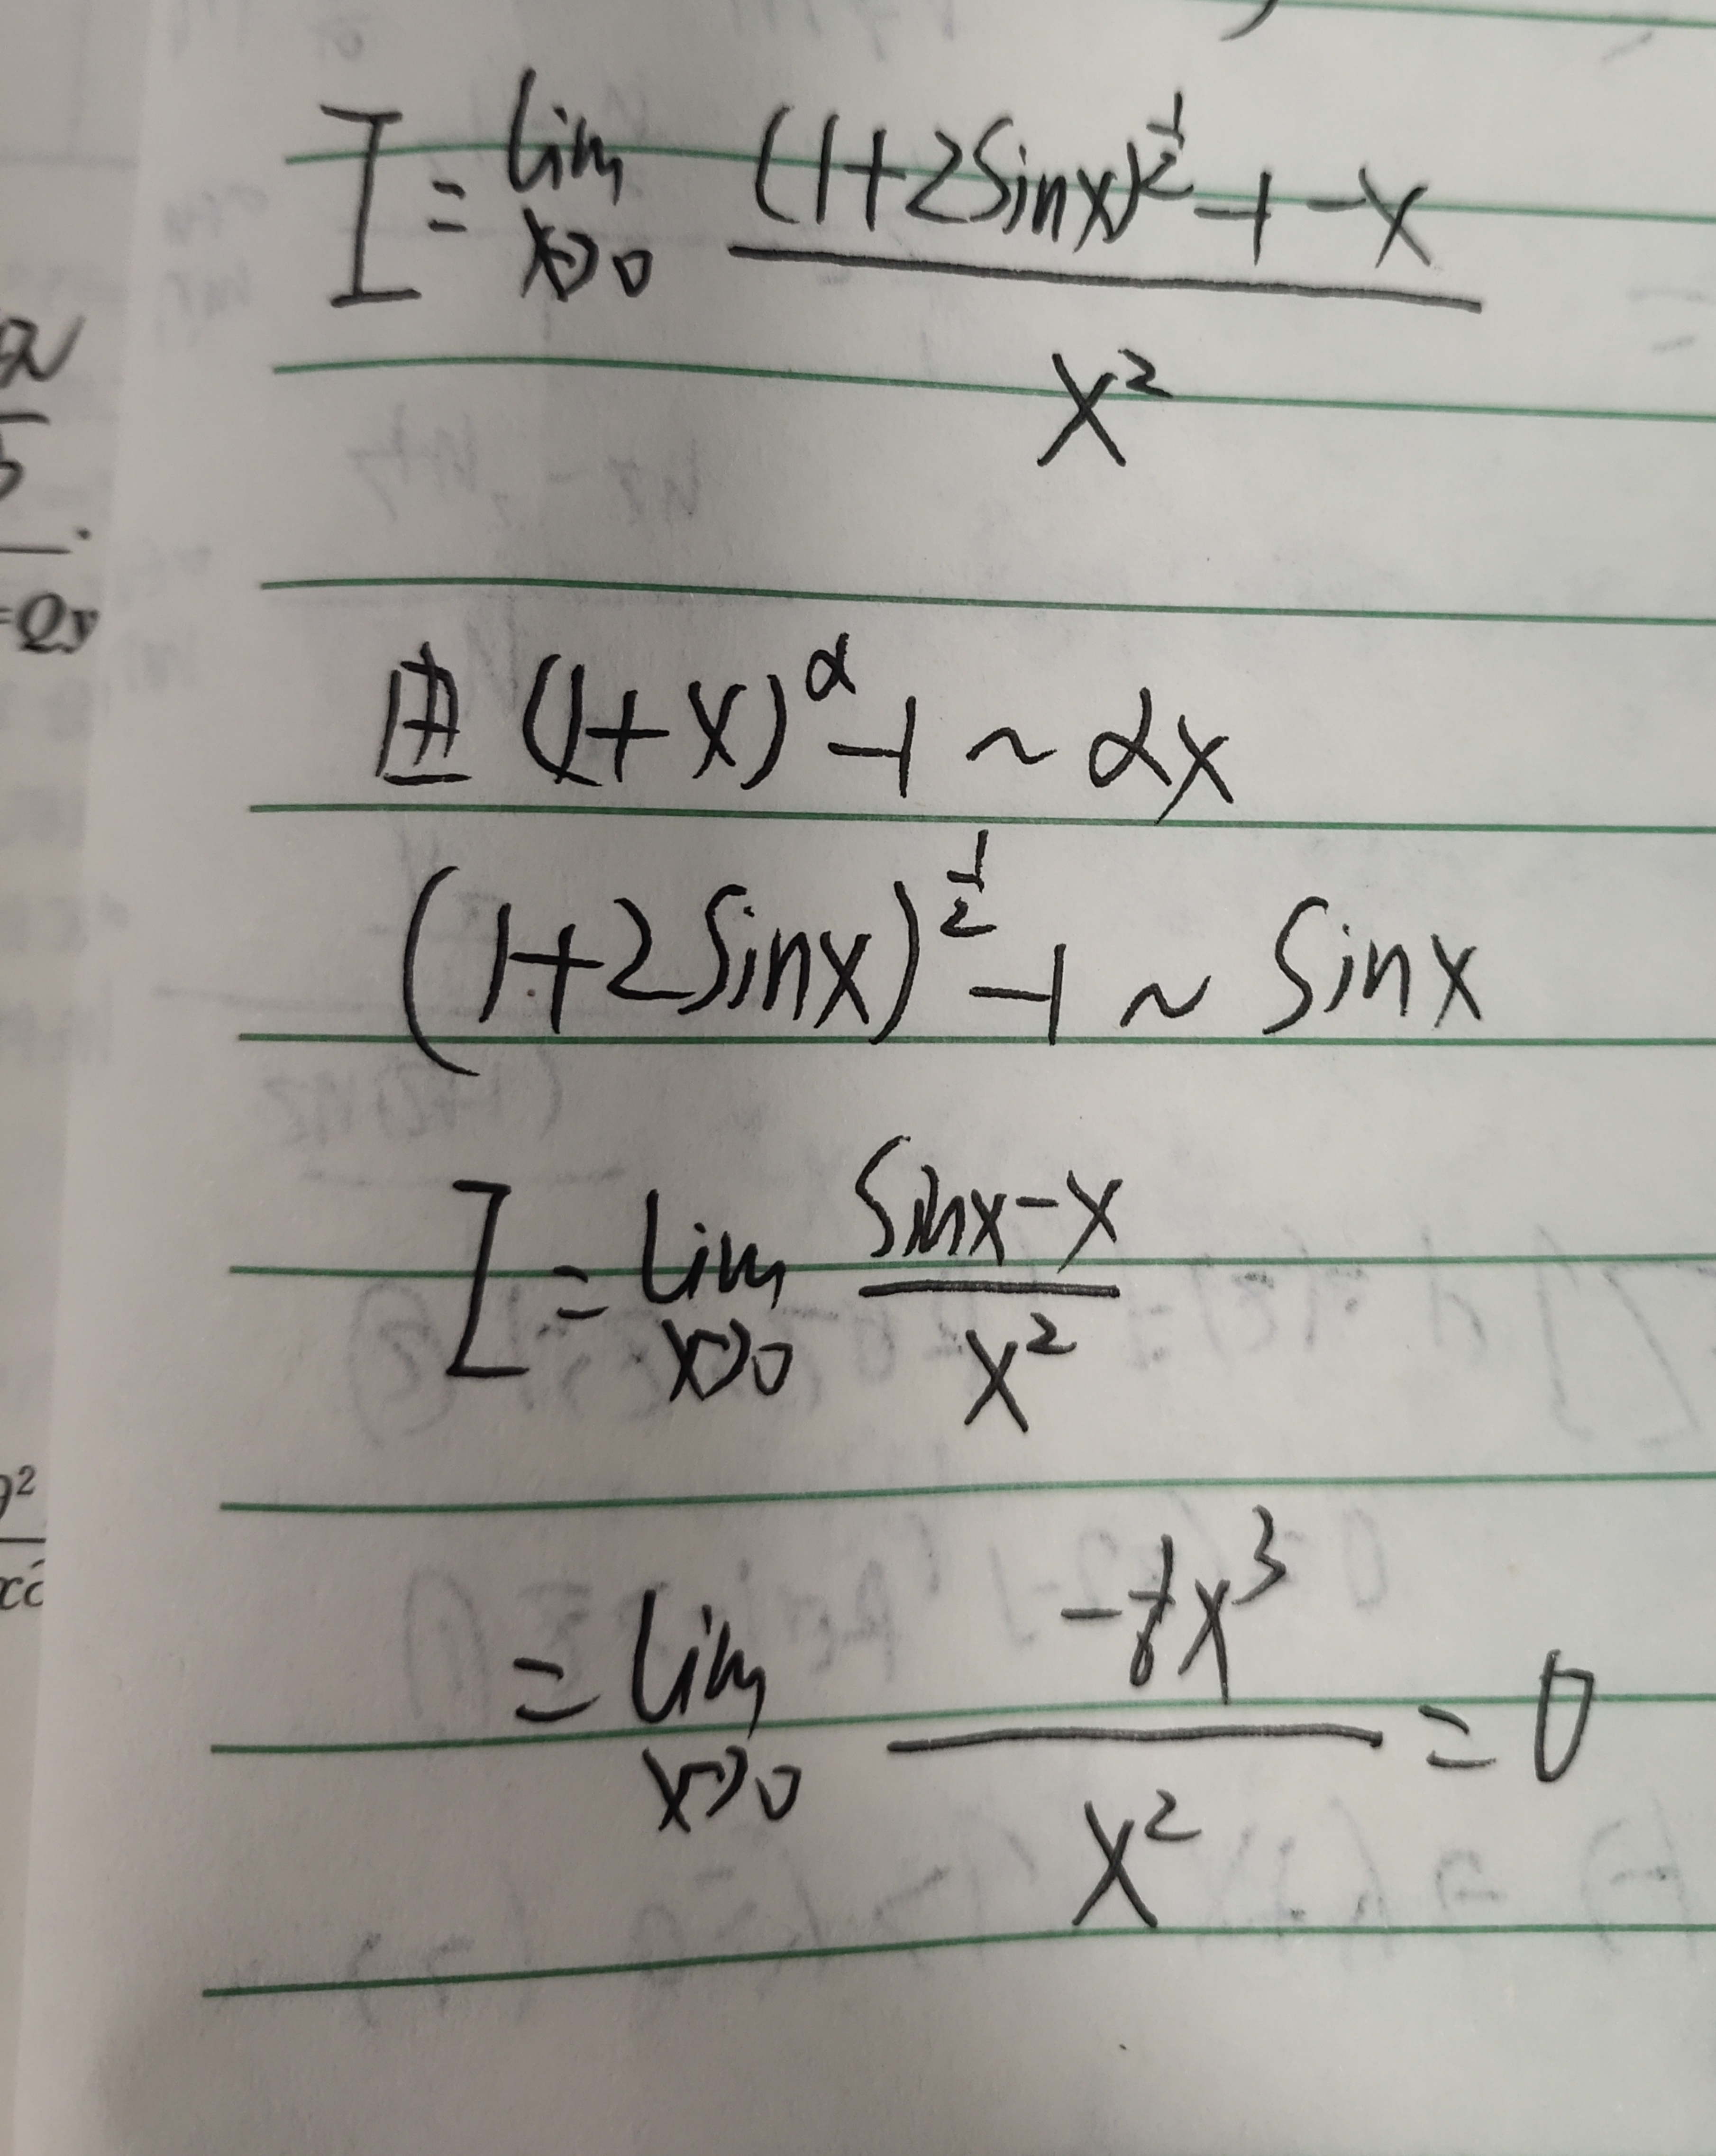 I = lim x→0 ((1+2sinx)^(1/2) -1 -x) / x²
由 (1+x)^α -1 ~ αx
(1+2sinx)^(1/2) -1 ~ sinx
I = lim x→0 (sinx-x) / x²
= lim x→0 (-1/6 x³) / x² = 0
=Qy